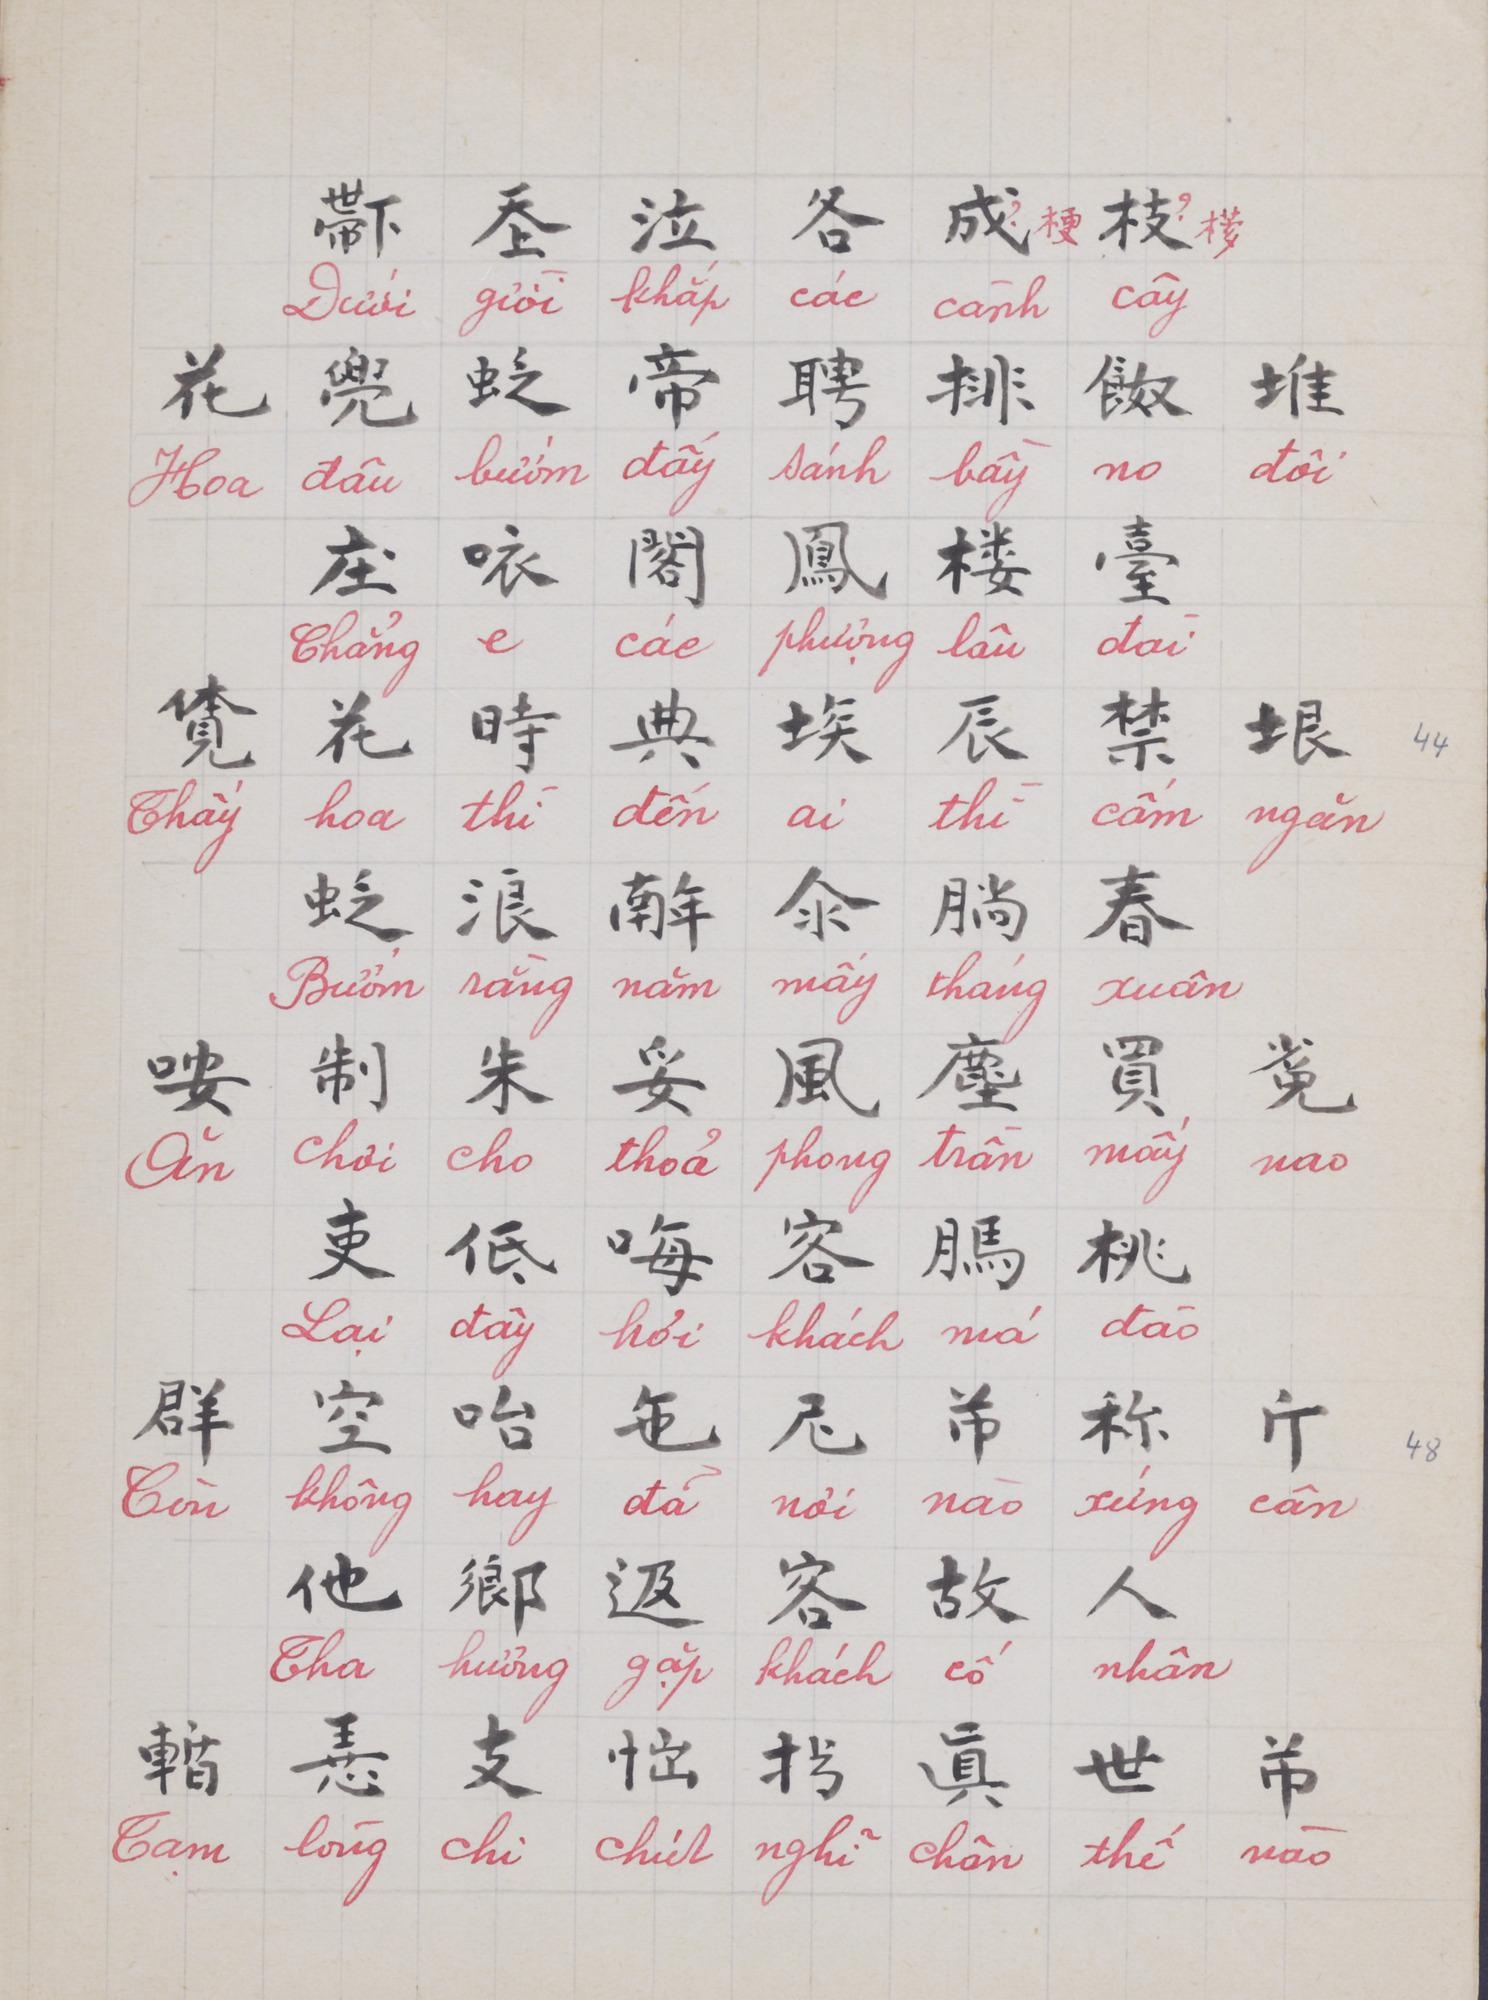 𨑜𡗶泣各成? 梗枝? 核
Dưới giời khắp các cành cây
花兜𧊉帝聘排𩛂堆
Hoa đâu bướm đấy sánh bầy no đôi
庄㕵閣鳳楼臺
Chẳng e các phượng lâu đài
𧡊花時典埃辰禁垠 44
Thấy hoa thì đến ai thì cấm ngăn
𧊉浪𢆥㐱𦝄春
Bướm rằng năm mấy tháng xuân
咹制朱妥風塵買𠒥
Ăn chơi cho thoả phong trần mấy nao
吏低𠳨客䐧桃
Lại đây hỏi khách má đào
群空咍㐌尼𱜢称斤 48
Còn không hay đã nơi nào xứng cân
他鄉返客故人
Tha hương gặp khách cố nhân
暫𢚸支𢤞𢪀眞世𱜢
Tạm lòng chi chút nghĩ chân thế nào